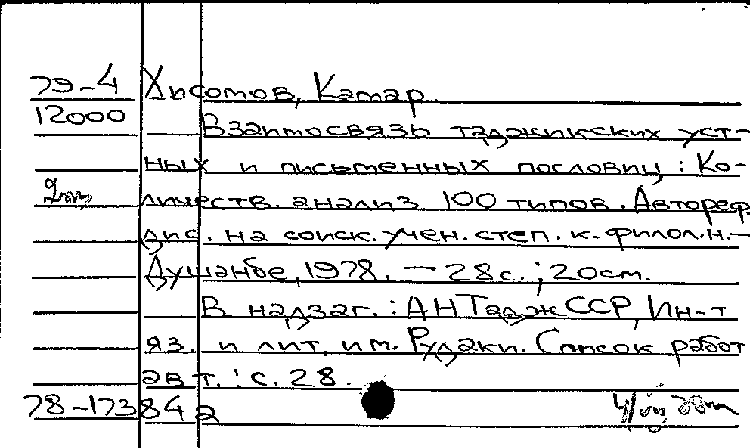 79-4 Хисомов, Камар.
12000 Взаимосвязь таджикских уст-
ных и письменных пословиц: Ко-
личеств. анализ 100 типов. Автореф.
дис. на соиск. учен. степ. к. филол. н. -
Душанбе, 1978. - 28с.; 20см.
В надзаг.: АН Тадж ССР, Ин-т
яз. и лит. им. Рудаки. Список работ
авт.: с. 28.
78-17384а